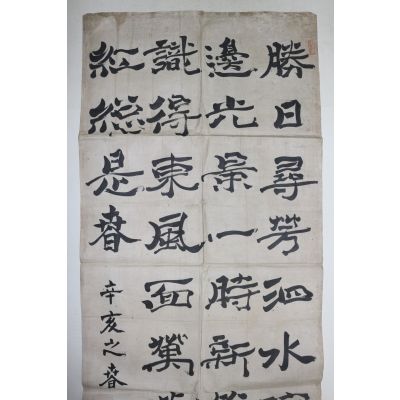 勝日尋芳泗水
邊光景一時新
識得東風面萬
紅總是春
辛亥之春